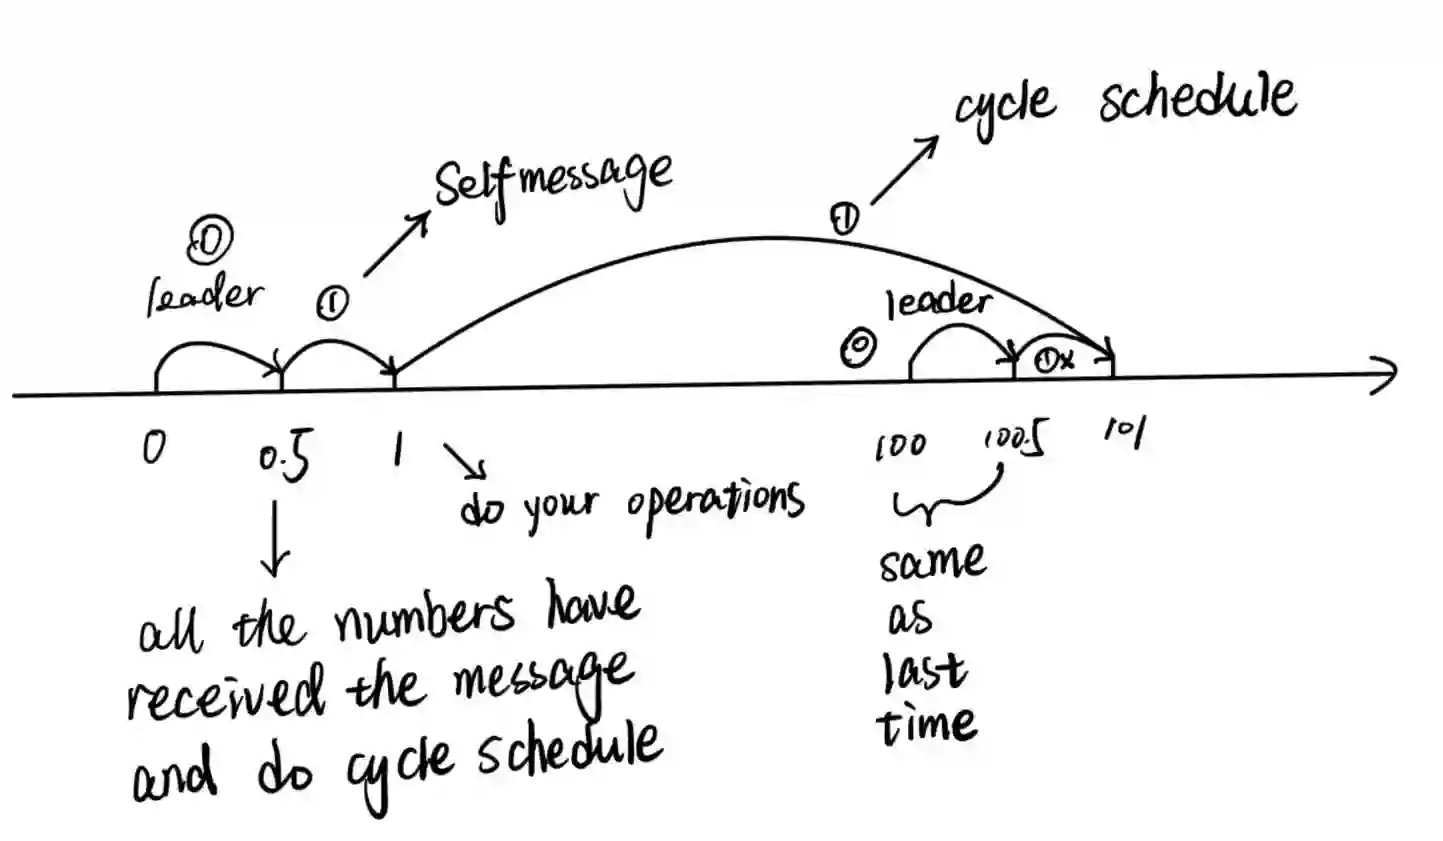 cycle schedule
Selfmessage
①
⓪
leader
①
leader
⓪
①x
0
0.5
1
100
100.5
101
do your operations
all the numbers have
received the message
and do cycle schedule
same
as
last
time